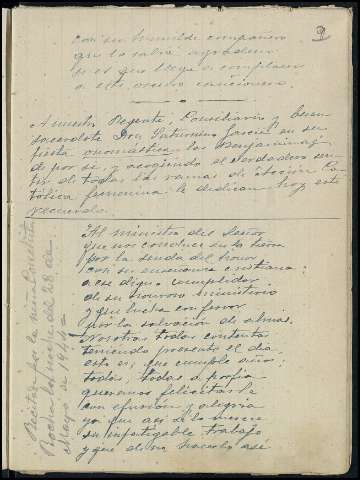 2
con su humilde compañero
que lo sabrá agradecer
a este pobre cancionero.
A nuestro Regente, Consiliario y buen
sacerdote Don Saturnino García en su
fiesta onomástica las Benjaminas
de por si, y acogiendo el verdadero sen-
tir de todas las ramas de Acción Ca-
tólica femenina le dedican hoy este
recuerdo.
Al ministro del Señor
que nos conduce en la tierra
por la senda del honor
con su enseñanza cristiana;
a ese digno cumplidor
de su honroso ministerio
y que lucha con fervor
por la salvación de almas.
Nosotras todas contentas
teniendo presente el día
este es, que cumple años;
todas, todas a porfía
queremos felicitarle
con efusión y alegría
ya que así se lo merece
su infatigable trabajo
y que el no hacerlo así
Recitada por la niña
noche del 28 de
Mayo de 1944